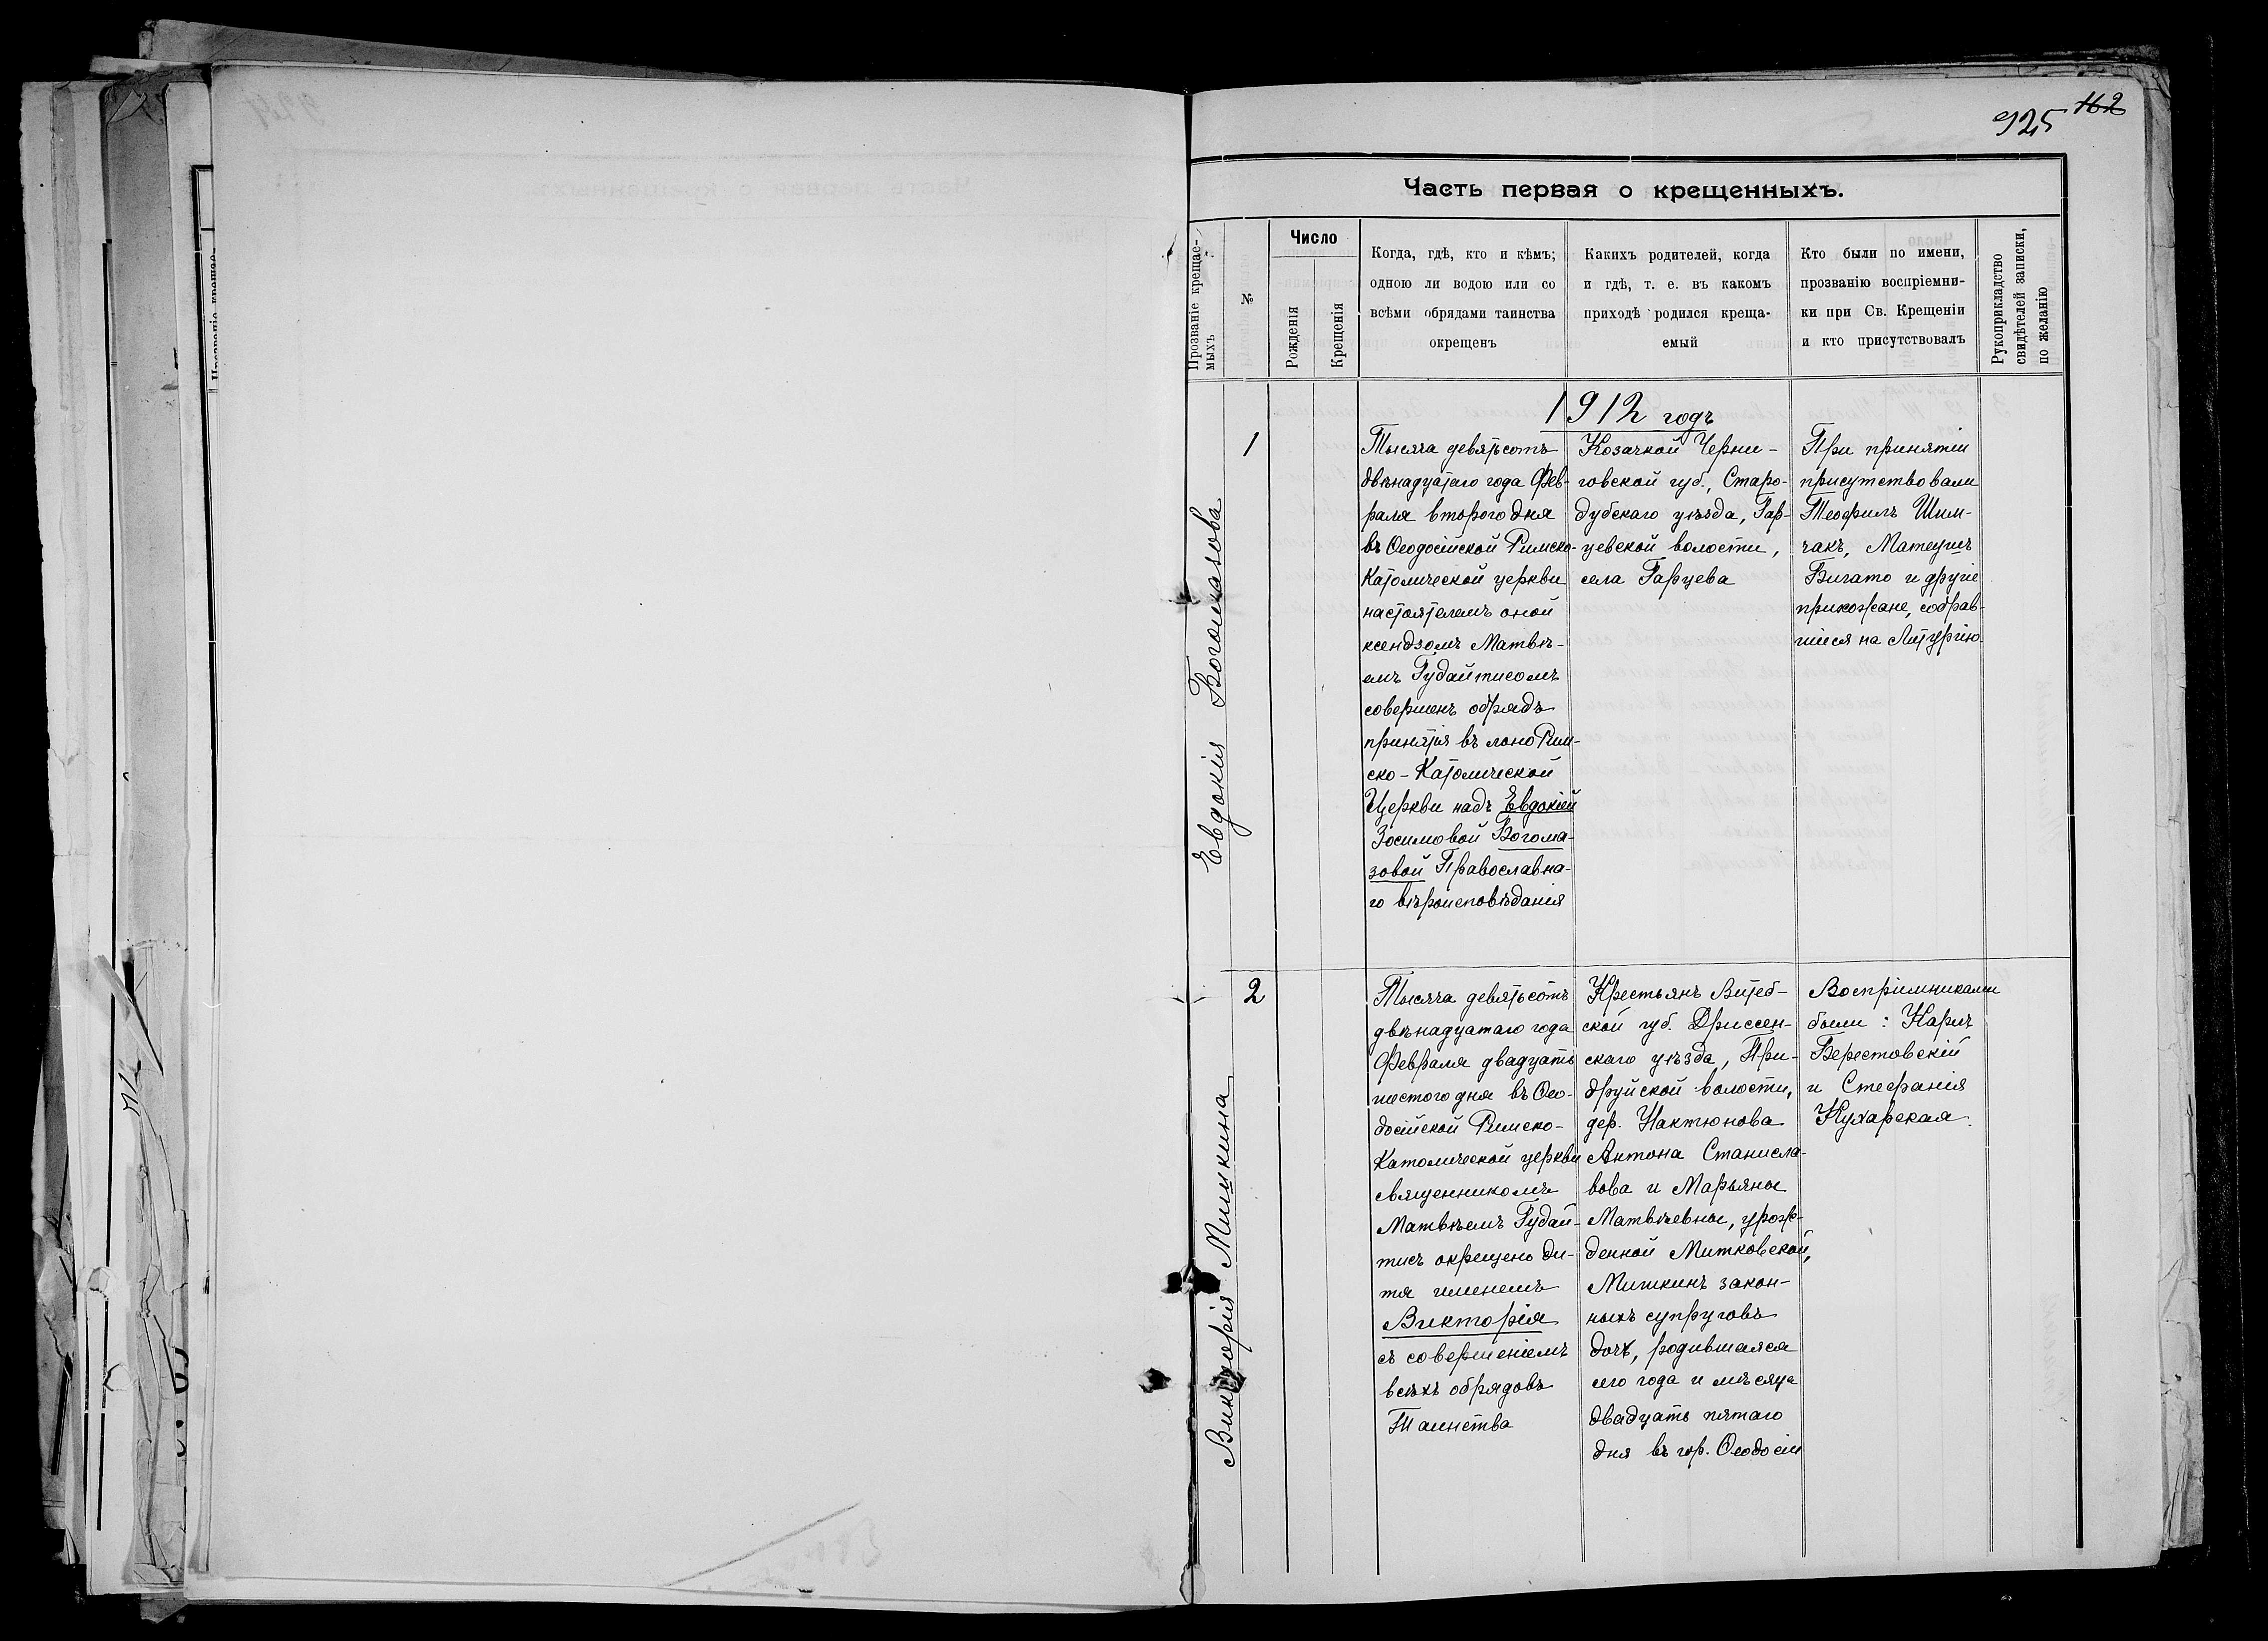 925 162
Часть первая о крещенныхъ.
Прозваніе крещае-
мыхъ
№
Число
Рожденія
Крещенія
Когда, гдѣ, кто и кѣмъ;
одною ли водою или со
всѣми обрядами таинства
окрещенъ
Какихъ родителей, когда
и гдѣ, т. е. въ какомъ
приходѣ родился креща-
емый
Кто были по имени,
прозванію воспріемни-
ки при Св. Крещеніи
и кто присутствовалъ
Рукоприкладство
свидѣтелей записки,
по желанію
1912 годъ
Евдокія Богомазова
1
Тысяча девятьсотъ
двѣнадцатаго года Фев-
раля второго дня
въ Ѳеодосійской Римско-
Католической церкви
настоятелемъ оной
ксендзомъ Матвѣ-
емъ Гудайтисомъ
совершенъ обрядъ
принятія въ лоно Рим-
ско-Католической
Церкви надъ Евдокіей
Зосимовой Богома-
зовой Православна-
го вѣроисповѣданія
Козачкой Черни-
говской губ., Старо-
дубскаго уѣзда, Гар-
цевской волости,
села Гарцева
При принятіи
присутствовали
Теофилъ Шим-
чакъ, Матеушъ
Бигато и другіе
прихожане, собрав-
шіеся на Литургію.
Викторія Мишкина
2
Тысяча девятьсотъ
двѣнадцатаго года
Февраля двадцать
шестого дня въ Ѳео-
досійской Римско-
Католической церкви
священникомъ
Матвѣемъ Гудай-
тисъ окрещено ди-
тя именемъ
Викторія
съ совершеніемъ
всѣхъ обрядовъ
Таинства
Крестьянъ Витеб-
ской губ. Дриссен-
скаго уѣзда, При-
друйской волости,
дер. Нактюнова
Антона Станисла-
вова и Марьяны
Матвѣевны, урож-
денной Митковской,
Мишкинъ закон-
ныхъ супруговъ
дочь, родившаяся
сего года и мѣсяца
двадцать пятаго
дня въ гор. Ѳеодосіи
Воспріимниками
были: Карлъ
Берестовскій
и Стефанія
Кухарская.